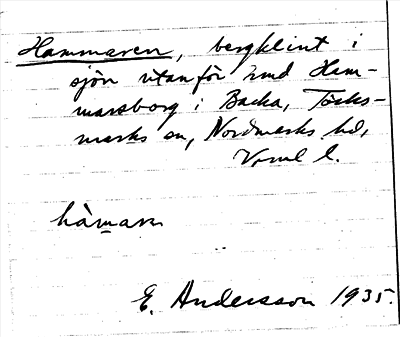 Hammaren, bergklint i
sjön utanför hmd Ham-
marsborg i Backa, Töcks-
marks sn, Nordmarks hd,
Värml l.
hàmarn
E. Andersson 1935.